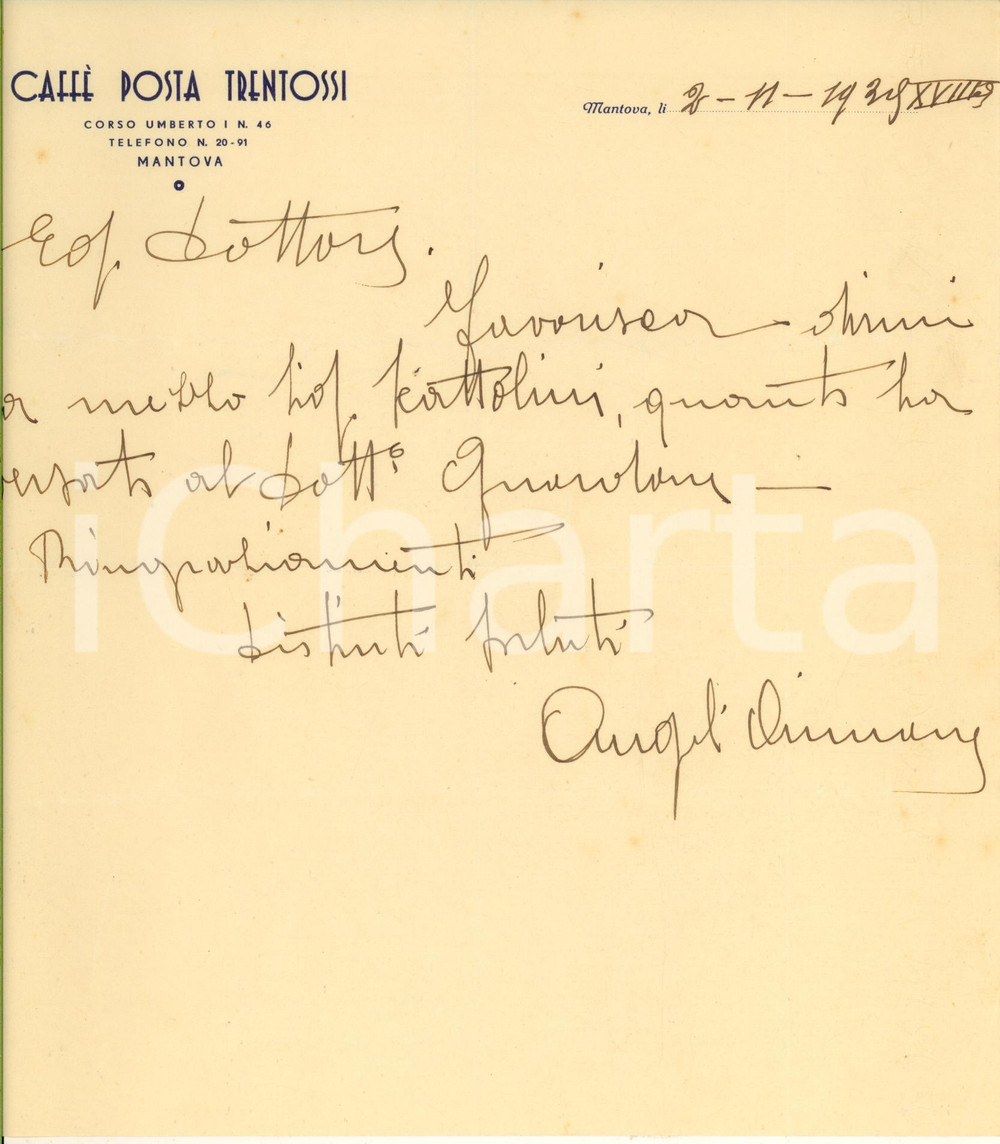 CAFFÈ POSTA TRENTOSSI
CORSO UMBERTO I N. 46
TELEFONO N. 20-91
MANTOVA
Mantova, li 2-11-1939 XVIII
Dottore.
Favorisca dirmi
a mezzo quanto ha
versato al Dott°
Ringraziamenti
Distinti saluti
iCharta